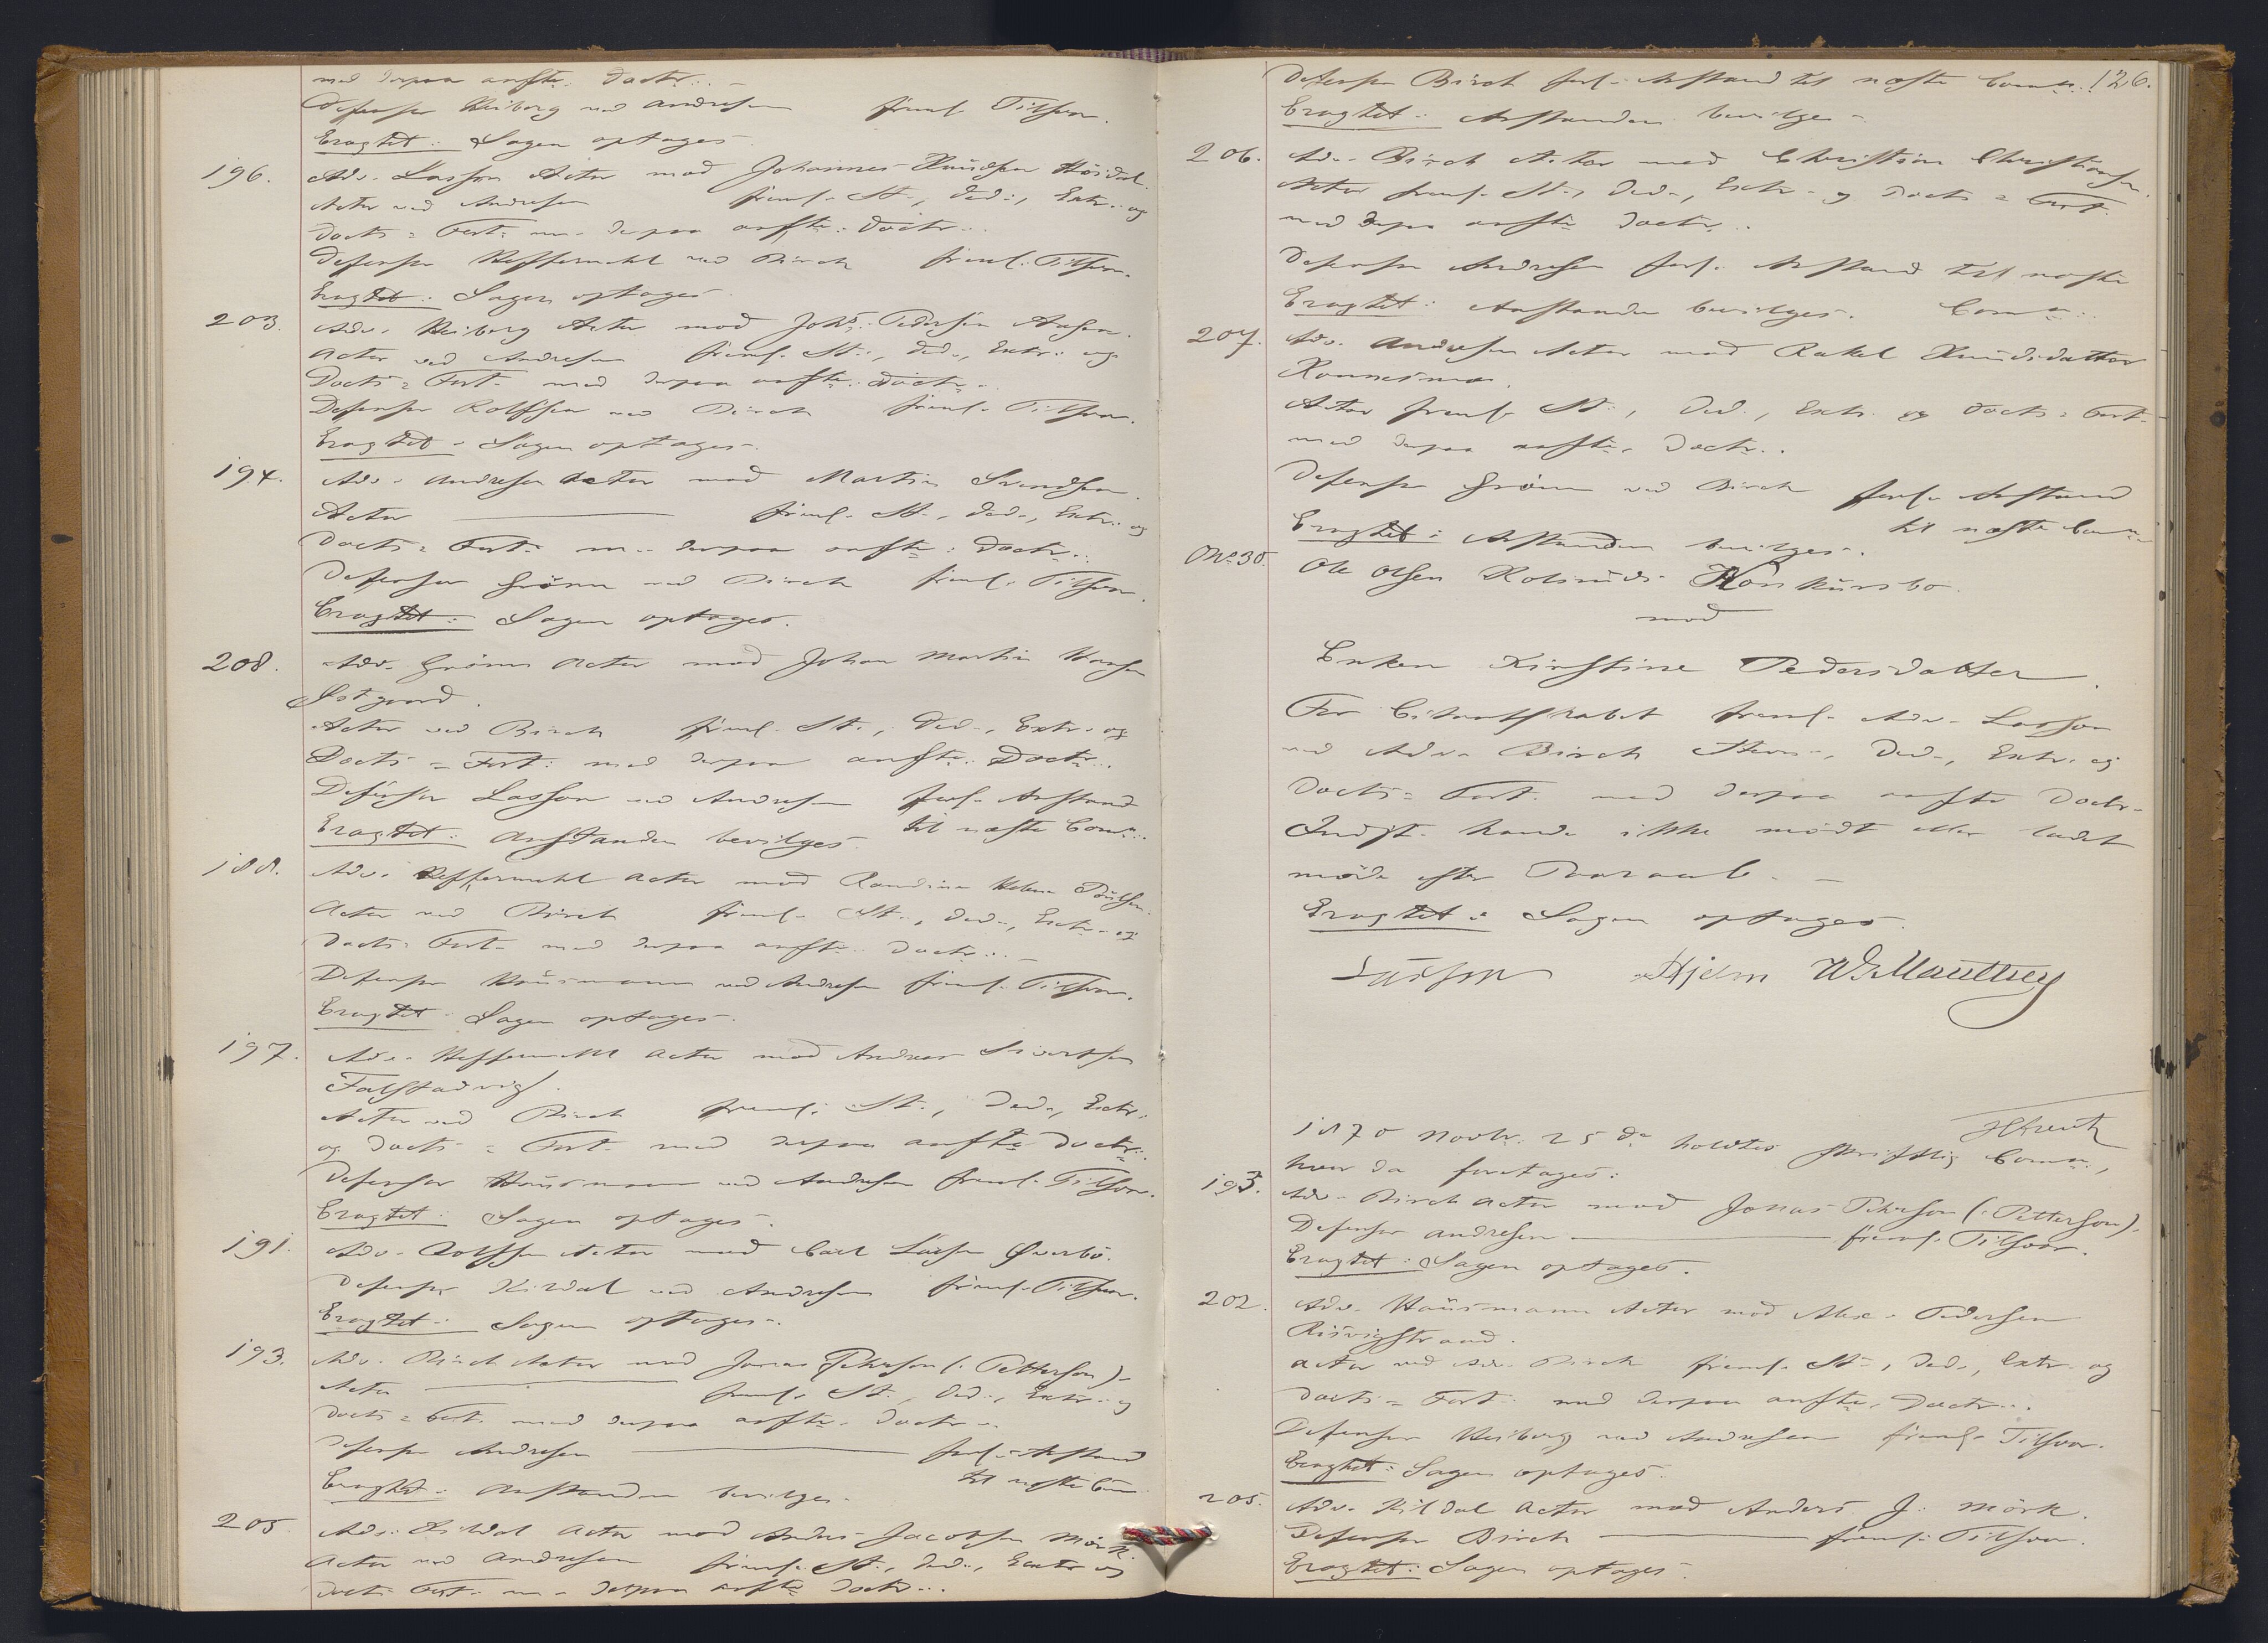 med derpaa anfte. Doctr..
Defensor Heiberg ved Andresen freml. Tilsvar.
Eragtet: Sagen optages.
196. Adv. Lasson Actor mod Johannes Knudsen Höidal.
Actor ved Andresen freml. St., Ded., Extr. og
Docts = Fort. m. derpaa anfte. Doctr..
Defensor Heffermehl ved Birch freml. Tilsvar.
Eragtet: Sagen optages
203. Adv. Heiberg Actor mod Johs. Pedersen Aasen.
Actor ved Andresen freml. St., Ded., Extr. og
Docts = Fort. med derpaa anfte. Doctr.
Defensor Rolfsen ved Birch freml. Tilsvar.
Eragtet: Sagen optages.
194. Adv. Andresen Actor mod Martin Svendsen.
Actor freml. St., Ded., Extr. og
Docts = Fort. m. derpaa anfte. Doctr..
Defensor Grönn ved Birch freml. Tilsvar.
Eragtet: Sagen optages.
208. Adv. Grönn Actor mod Johan Martin Hansen
Östgaard.
Actor ved Birch freml. St., Ded., Extr. og
Docts = Fort. med derpaa anfte. Doctr..
Defensor Lasson ved Andresen forl. Anstand
til næste Comn..
Eragtet: Anstanden bevilges.
188. Adv. Heffermehl Actor mod Randine Helene
Actor ved Birch freml. St., Ded., Extr. og
Docts = Fort. med derpaa anfte. Doctr..
Defensor Hausmann ved Andresen freml. Tilsvar.
Eragtet: Sagen optages.
197. Adv. Heffermehl Actor mod Andreas Sivertsen
Falstadvig.
Actor ved Birch freml. St., Ded., Extr.
og Docts = Fort. med derpaa anfte Doctr..
Defensor Hausmann ved Andresen freml. Tilsvar.
Eragtet: Sagen optages.
191. Adv. Rolfsen Actor mod Carl Larsen
Defensor Kildal ved Andresen freml. Tilsvar.
Eragtet: Sagen optages.
193. Adv. Birch Actor mod Jonas Pehrson (: Petterson).
Actor freml. St., Ded., Extr. og
Docts = Fort. med derpaa anfte. Doctr.
Defensor Andresen forl. Anstand
til næste Comn
Eragtet: Anstanden bevilges.
205. Adv. Kildal Actor mod Anders Jacobsen Mörk.
Actor ved Andresen freml. St., Ded., Extr og
Docts Fort. m. derpaa anfte Doctr...
126.
Defensor Birch forl. Anstand til næste Comn.
Eragtet: Anstanden bevilges.
206. Adv. Birch Actor mod Christian Christiansen.
Actor freml. St., Ded., Extr. og Docts = Fort.
med derpaa anfte Doctr..
Defensor Andresen forl. Anstand til næste
Comn..
Eragtet: Anstanden bevilges.
207. Adv. Andresen Actor mod Rakel Knudsdatter
Actor freml. St., Ded., Extr. og Docts = Fort.
med derpaa anfte. Doctr..
Defensor Grönn ved Birch forl. Anstand
til næste Comn
Eragtet: Anstanden bevilges.
No 30. Ole Olsen Konkursbo
mod
Enken Kirstine Pedersdatter.
For Citantskabet freml. Adv. Lasson
ved Adv. Birch Stevn., Ded., Extr. og
Docts = Fort. med derpaa anfte Doctr.
Indst. havde ikke mödt eller ladet
möde efter Paaraab.
Eragtet: Sagen optages.
Larsson Hjelm W. Manthey
1870 Novbr. 25 de. holdtes skriftlig Comn.,
hvor da foretages:
193. Adv. Birch Actor mod Jonas Pehrson (: Petterson).
Defensor Andresen freml. Tilsvar.
Eragtet: Sagen optages.
202. Adv. Hausmann Actor mod Alex. Pedersen
Risvigstrand.
Actor ved Adv. Birch freml. St., Ded., Extr. og
Docts = Fort. med derpaa anfte. Doctr..
Defensor Heiberg ved Andresen freml. Tilsvar.
Eragtet: Sagen optages.
205. Adv. Kildal Actor mod Anders J. Mörk.
Defensor Birch freml. Tilsvar.
Eragtet: Sagen optages.